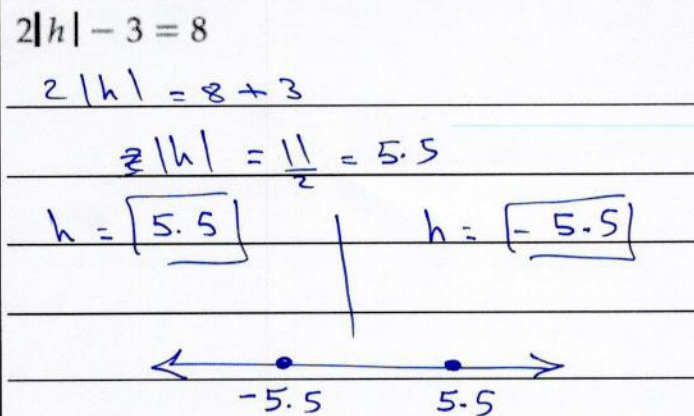 2|h| − 3 = 8
2|h| = 8 + 3
|h| = 11/2 = 5.5
h = 5.5 h = - 5.5
-5.5 5.5